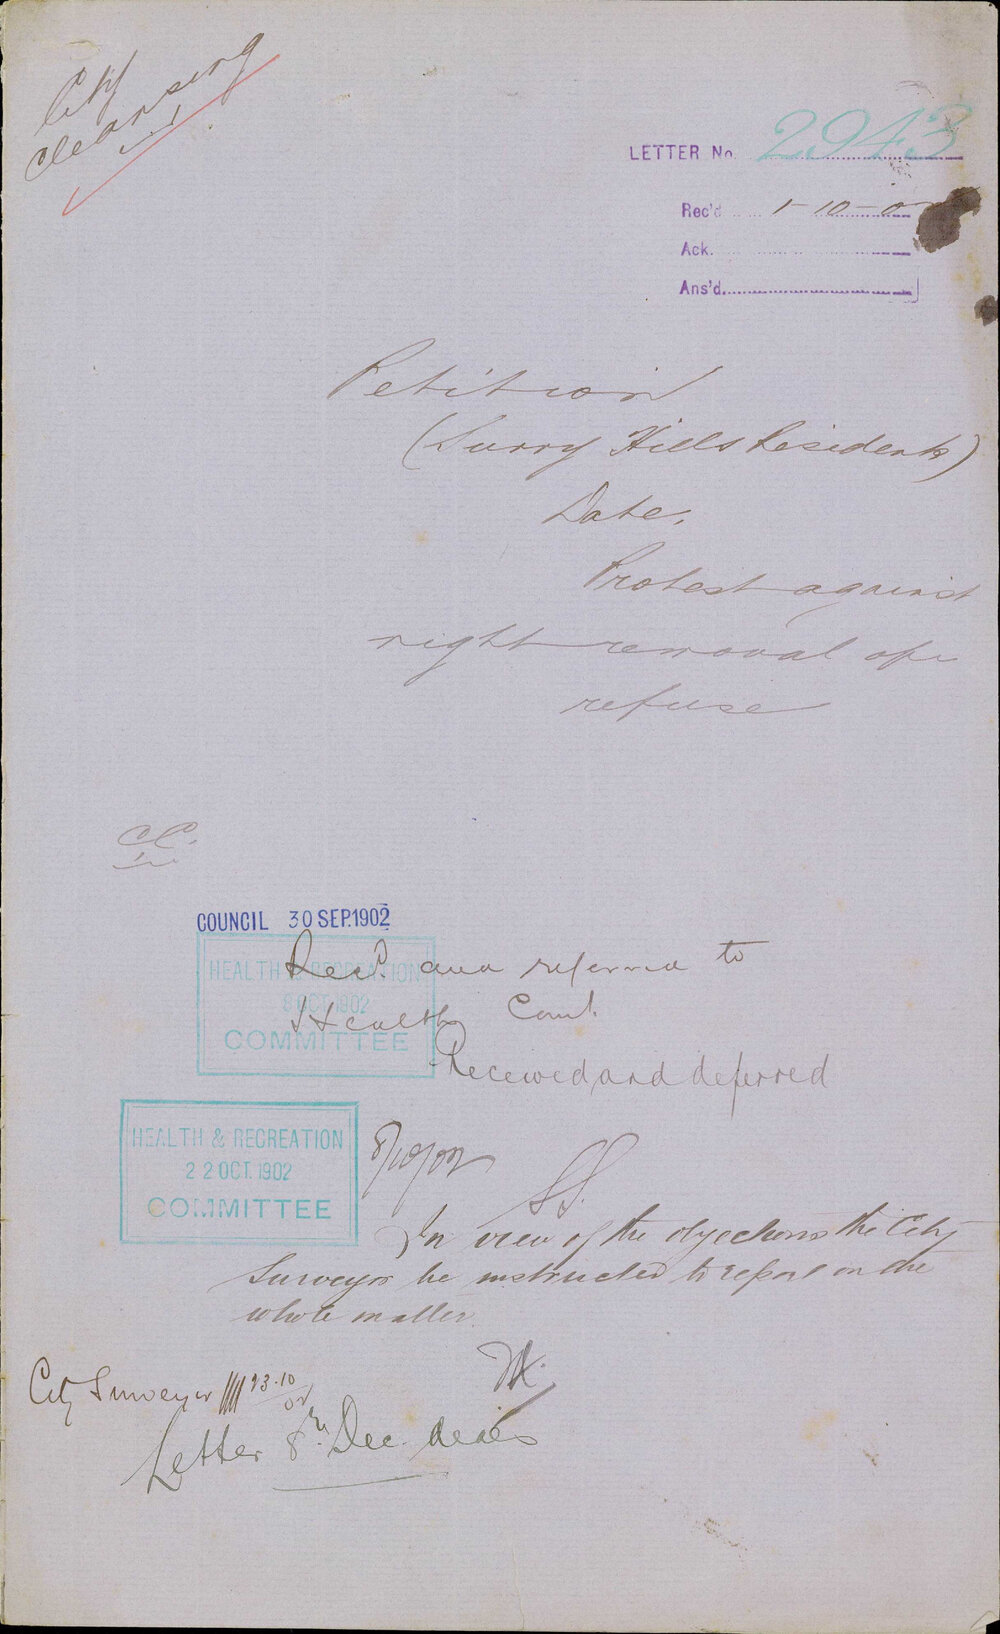 City
cleansing
LETTER No. 2943
Rec'd 1-10-0
Ack.
Ans'd
Petition
(Surry Hills Residents)
Date.
Protest against
night removal of
refuse
CC.
COUNCIL 30 SEP. 1902
HEALTH & RECREATION
8 OCT. 1902
COMMITTEE
Recd. and referred to
Health Comt.
Received and deferred
HEALTH & RECREATION
22 OCT. 1902
COMMITTEE
8/10/02
In view of the objections the City
Surveyor be instructed to report on the
whole matter.
City Surveyor 23.10
02
Letter 8th Dec. deals